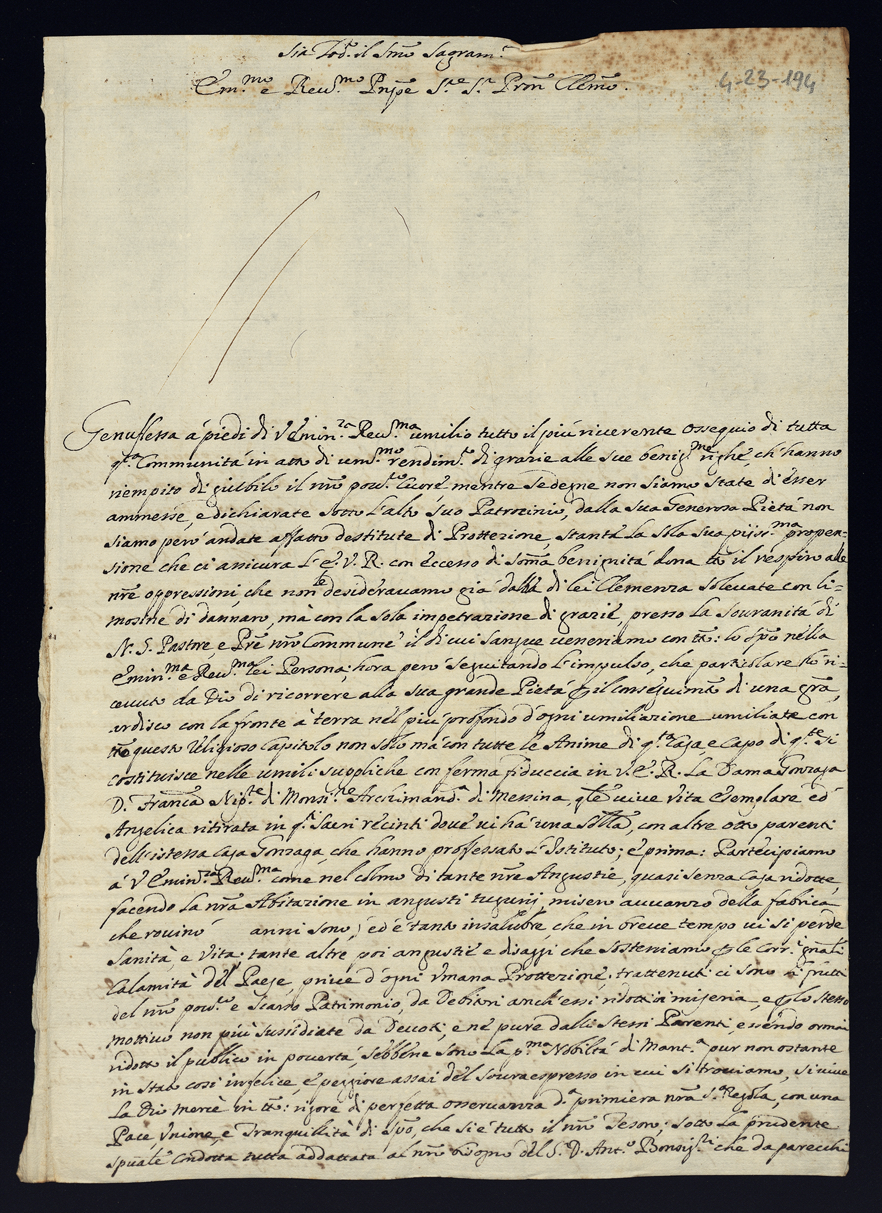 Sia Lod.º il Smo Sagram.to
Em.mo e Reu.mo Pnpe S.re S.r Pron Clemo.
4-23-194
Genuflessa á piedi di V'Emin.za Reu.ma umilio tutto il più riuerente ossequio di tutta
q.ta Communitá in atto di um.mo rendim.to di grazie alle sue benig.me righe, ch'hanno
riempito di giubbilo il nro pou.ro Cuore mentre se degne non siamo state di esser
ammesse, e dichiarate sotto l'alto suo Patrocinio, dalla sua Generosa Pietá non
siamo però andate affatto destitute di Prottezione stante la sola sua pijss.ma propen=
sione che ci assicura l'E.V.R. con eccesso di soma benignitá dona tt il respiro alle
nre oppressioni, che non desiderauamo giá dalla di lei Clemenza soleuate con li=
mosine di dannaro, mà con la sola impetrazione di grazie, presso la Souranitá di
N. S. Pastore e Pre nro Commune il di cui sangue ueneriamo con tt: lo Spo nella
Emin.ma e Reu.ma lei Persona; hora però seguitando l'impulso, che particolare hò ri=
ceuuto da Dio di ricorrere alla sua grande Pietá p il conseguimto di una gra,
ardisco con la fronte à terra nel più profondo d'ogni umiliazione umiliate con
tto questo Religioso Capitolo non solo má con tutte le Anime di q.ta Casa, e Capo di q.te si
costituisce nelle umili suppliche con ferma fiduccia in V.E.R. la Dama Gonzaga
D. Franca Nip.te di Monsi.re Archimand.a di Messina, qle uiue uita esemplare ed
Angelica ritirata in q.ti Sacri recinti doue ui há una Srlla, con altre otto parenti
dell'istessa Casa Gonzaga, che hanno proffessato l'Istituto; e prima: Partecipiamo
á V'Emin.za Reu.ma come nel colmo di tante nre Angustie, quasi senza Casa ridotte,
facendo la nra Abitazione in angusti tugurij, misero auuanzo della fabrica
che rouino anni sono; ed é tanto insalubre che in breue tempo ui si perde
Sanità, e Vita; tante altre poi angustie e disaggi che sosteniamo p le corr.i gnali
Calamitá del Paese, priue d'ogni Vmana Prottezione; trattenuti ci sono i frutti
del nro pou.ro e scarso Patrimonio, da Debitori anch'essi ridotti in miseria, e p lo stesso
mottiuo non più sussidiate da Deuoti, e né pure dalli stessi Parenti essendo ormai
ridotto il publico in pouertá, sebbene sono la p.ma Nobiltá di Mant.a pur non ostante
in stato cosi infelice, e peggiore assai del souraespresso in cui si trouiamo, si uiue
la Dio mercè in tt: rigore di perfetta osseruanza d.a primiera nra S.a Regola, con una
Pace, Vnione, e Tranquillitá di Spo, che si é tutto il nro Tesoro; sotto la prudente
spuale condotta tutta addattata al nro bisogno del S. D. Ant.o Bonsig.ri che da parecchi